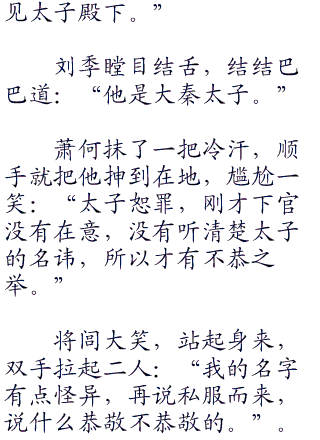 见太子殿下。”
刘季瞠目结舌，结结巴
巴道：“他是大秦太子。”
萧何抹了一把冷汗，顺
手就把他抻到在地，尴尬一
笑：“太子恕罪，刚才下官
没有在意，没有听清楚太子
的名讳，所以才有不恭之
举。”
将闾大笑，站起身来，
双手拉起二人：“我的名字
有点怪异，再说私服而来，
说什么恭敬不恭敬的。”。